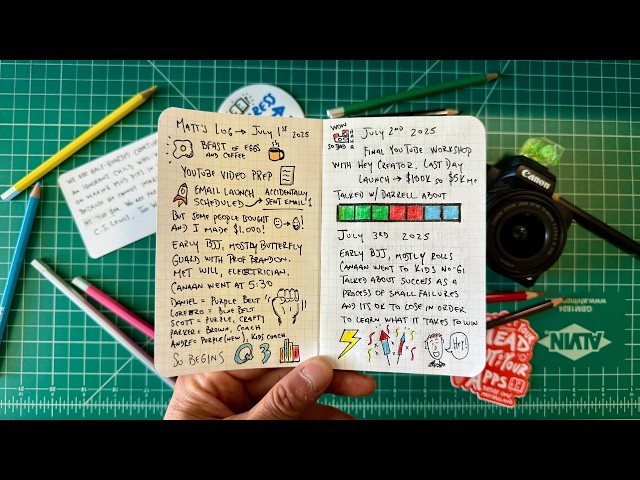 MATT'S LOG → JULY 1ST 2025
BEAST OF EGGS
AND COFFEE
YOUTUBE VIDEO PREP
EMAIL LAUNCH
SCHEDULED →
ACCIDENTALLY
SENT EMAIL!
BUT SOME PEOPLE BOUGHT
AND I MADE $1,000!
EARLY BJJ, MOSTLY BUTTERFLY
GUARD WITH PROF BRANDON.
MET WILL, ELECTRICIAN.
CANAAN WENT AT 5:30
DANIEL = PURPLE BELT
= BLUE BELT
SCOTT = PURPLE, CRAFTY
PARKER = BROWN, COACH
ANDRE = PURPLE (NEW), KIDS COACH
SO BEGINS Q3
WOW
SO BAD
JULY 2ND 2025
FINAL YOUTUBE WORKSHOP
WITH HEY CREATOR. LAST DAY
LAUNCH → $100K SO $5K ME
TALKED W/ DARRELL ABOUT
JULY 3RD 2025
EARLY BJJ, MOSTLY ROLLS
CANAAN WENT TO KIDS NO-GI
TALKED ABOUT SUCCESS AS A
PROCESS OF SMALL FAILURES
AND ITS OK TO LOSE IN ORDER
TO LEARN WHAT IT TAKES TO WIN
HEY!
Canon
ALVIN
C.S. LEWIS
APPS